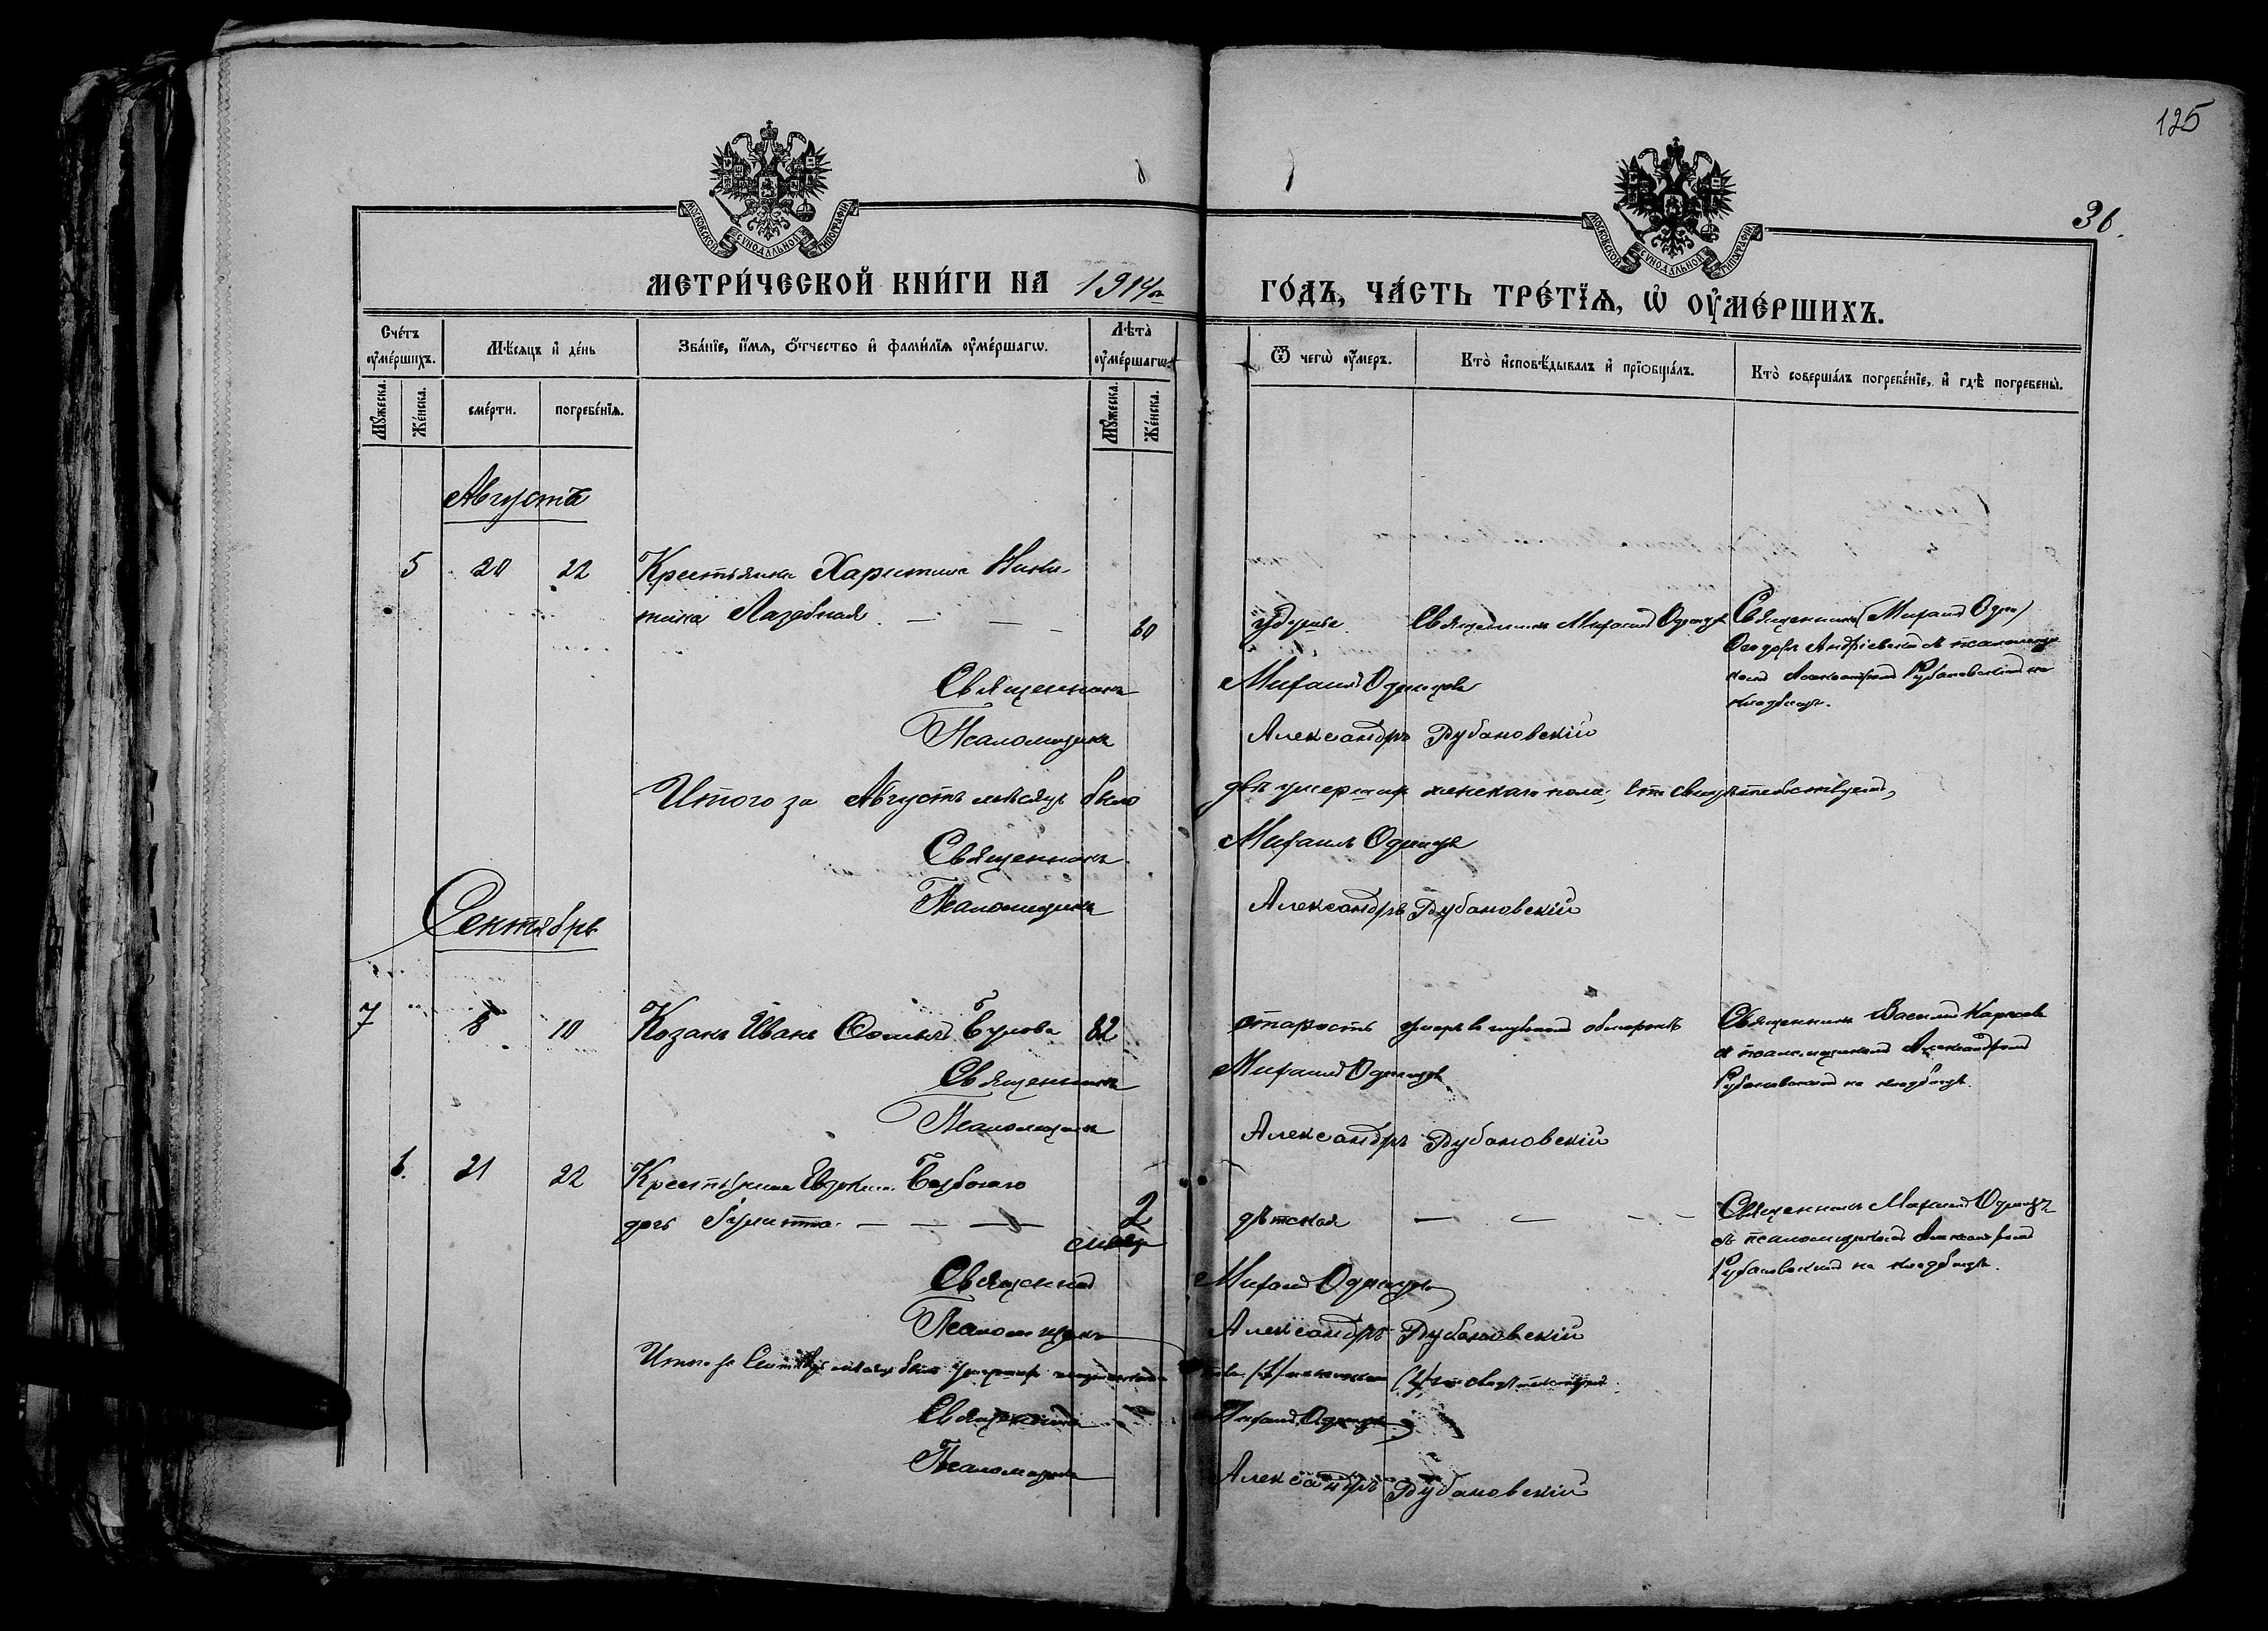 125
36.
МОСКОВСКОЙ СУНОДАЛЬНОЙ ТИПОГРАФІИ
МОСКОВСКОЙ СУНОДАЛЬНОЙ ТИПОГРАФІИ
МЕТРИ́ЧЕСКОЙ КНИ́ГИ НА 1914й ГО́ДЪ, ЧА́СТЬ ТРЕ́ТЇѦ, Ѡ҆ ОУ҆МЕ́РШИХЪ.
Сче́тъ оу҆ме́ршихъ.
Мꙋ́жеска.
Же́нска.
Мѣ́сяцъ и҆ де́нь
сме́рти.
погребе́нїѧ.
Зва́нїе, и҆́мѧ, ѻ҆́тчество и҆ фами́лїѧ оу҆ме́ршагѡ.
Лѣ̀та оу҆ме́ршагѡ.
Мꙋ́жеска.
Же́нска.
Ѿ чегѡ̀ оу҆́меръ.
Кто̀ и҆сповѣ́дывалъ и҆ прїѡбща́лъ.
Кто̀ соверша́лъ погребе́нїе, и҆ гдѣ̀ погребены̀.
Августъ
5 20 22 Крестьянка Харитина Ники-
тина Лазебная 80 удушье Священникъ Михаилъ Одинцовъ Священникъ Михаилъ
Ѳеодоръ Андріевскій съ псаломщи-
комъ Александромъ Рубановскимъ на
кладбищѣ.
Священникъ Михаилъ Одинцовъ
Псаломщикъ Александръ Рубановскій
Итого за Августъ мѣсяцъ было двѣ умершихъ женскаго пола, что свидѣтельствуемъ,
Священникъ Михаилъ Одинцовъ
Псаломщикъ Александръ Рубановскій
Сентябрь
7 8 10 Козакъ Иванъ 82 старость умеръ Священникъ Василій
съ псаломщикомъ Александромъ
Рубановскимъ на кладбищѣ.
Священникъ Михаилъ Одинцовъ
Псаломщикъ Александръ Рубановскій
6. 21 22 Крестьянина
дочь Іулитта 2 мѣсяца дѣтская Священникъ Михаилъ Одинцовъ
съ псаломщикомъ Александромъ
Рубановскимъ на кладбищѣ.
Священникъ Михаилъ Одинцовъ
Псаломщикъ Александръ Рубановскій
Итого за Сентябрь мѣсяцъ было умершихъ мужескаго пола (1) женскаго (1) что свидѣтельствуемъ
Священникъ Михаилъ Одинцовъ
Псаломщикъ Александръ Рубановскій